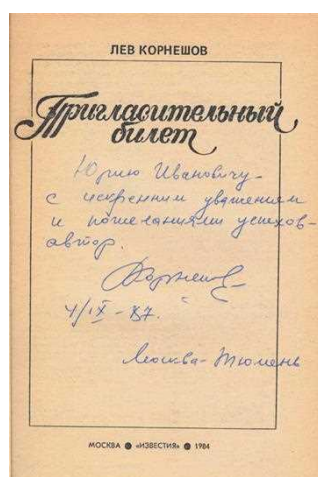 ЛЕВ КОРНЕШОВ
Пригласительный
билет
Юрию Ивановичу –
с искренним уважением
и пожеланиями успехов –
автор.
Корнешов
4/IX – 87.
Москва – Тюмень
МОСКВА ● «ИЗВЕСТИЯ» ● 1984